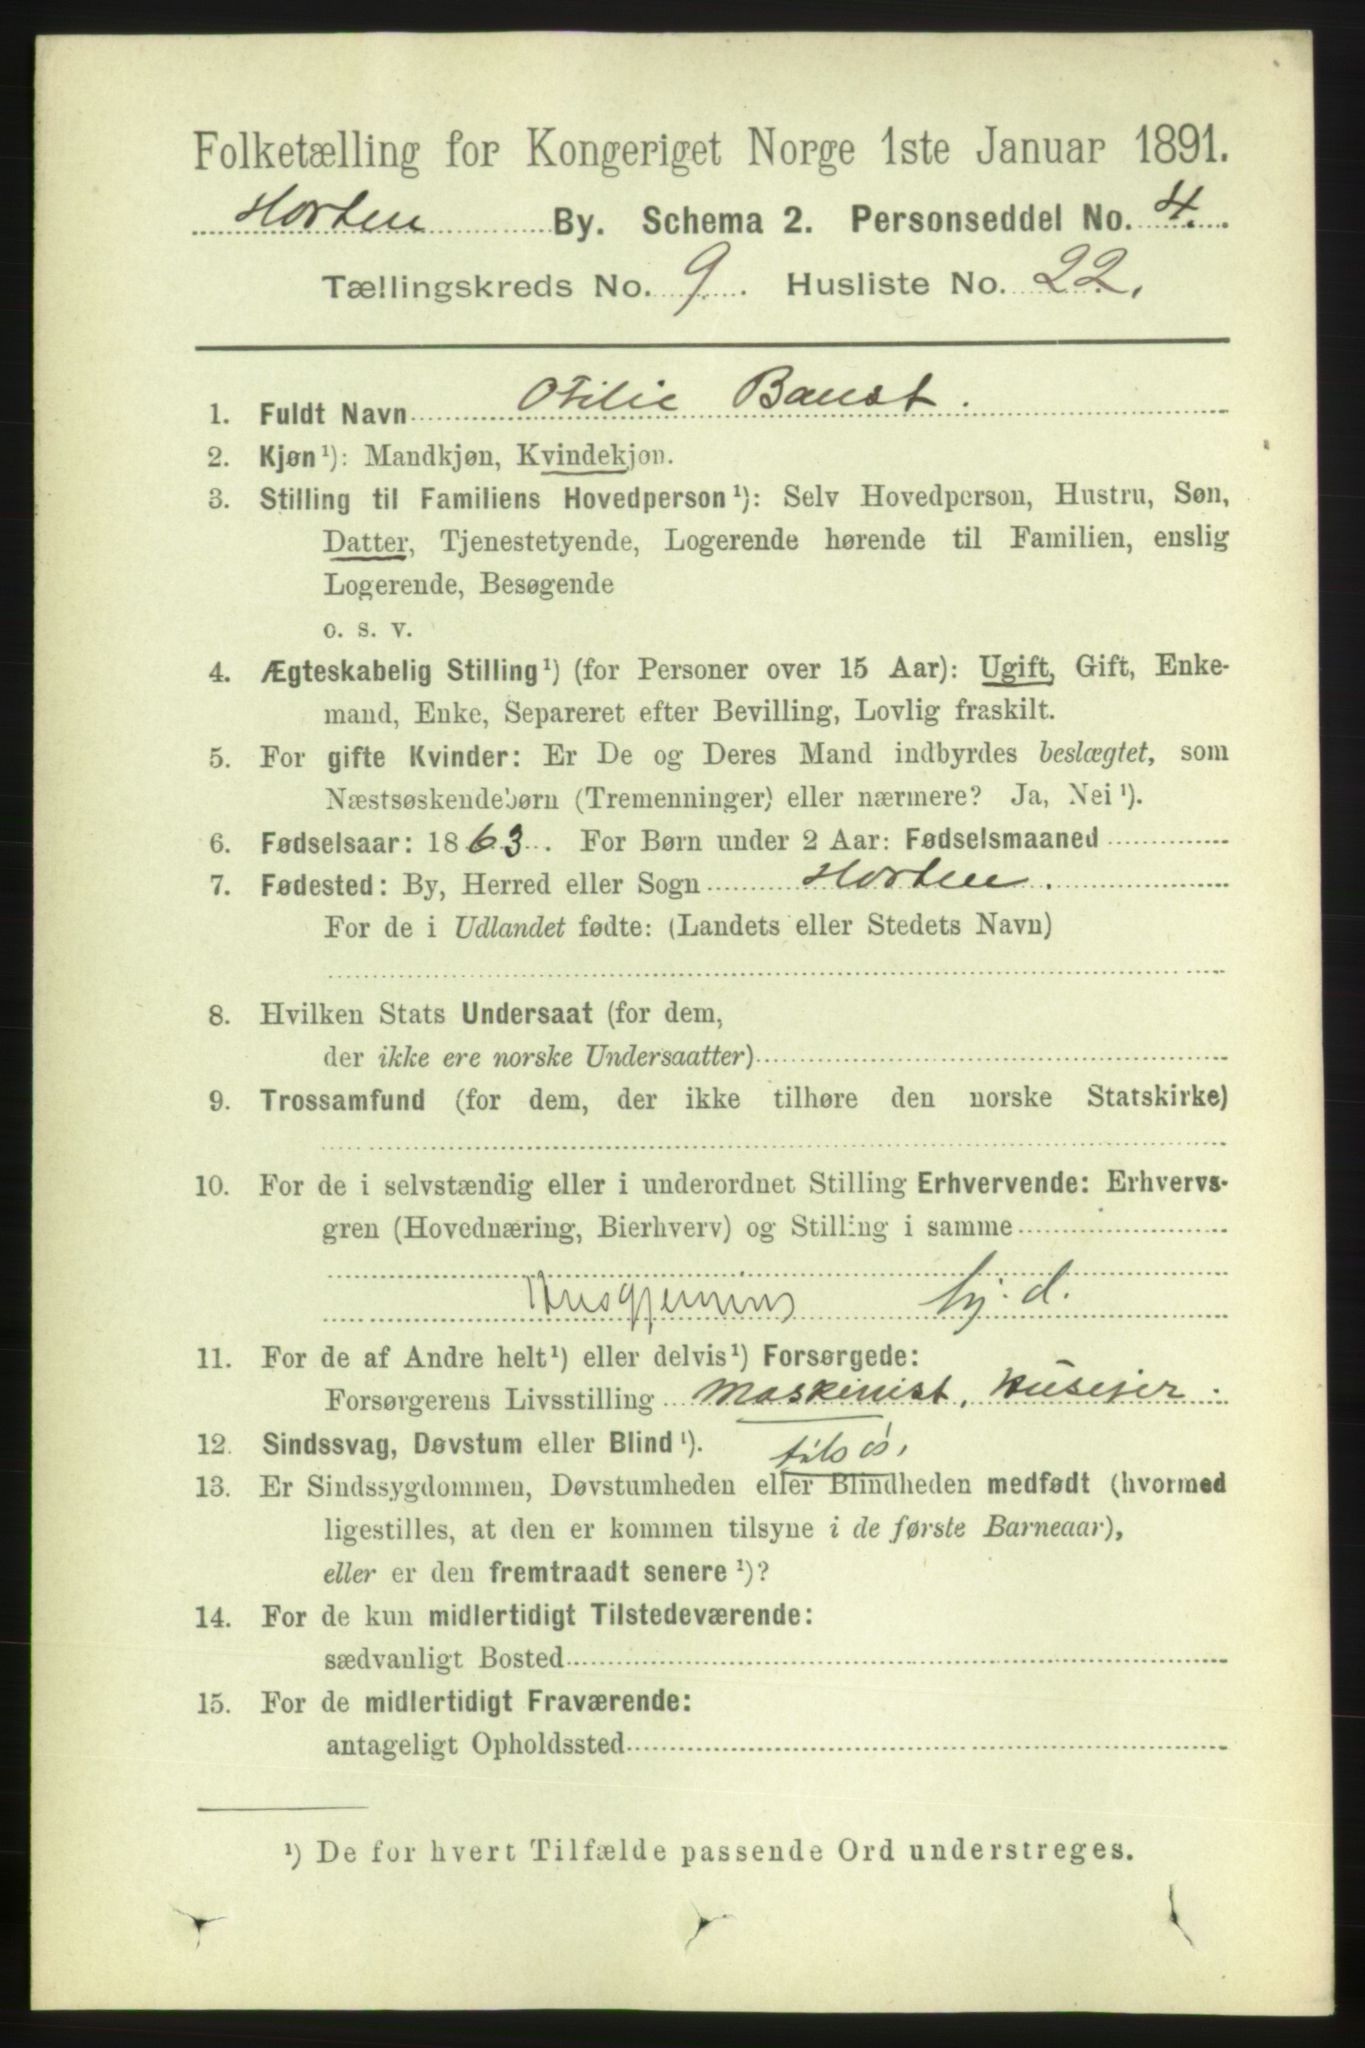 Folketælling for Kongeriget Norge 1ste Januar 1891.
Horten By. Schema 2. Personseddel No. 4.
Tællingskreds No. 9. Husliste No. 22.
1. Fuldt Navn Otilie Baust.
2. Kjøn¹): Mandkjøn, Kvindekjøn.
3. Stilling til Familiens Hovedperson¹): Selv Hovedperson, Hustru, Søn,
Datter, Tjenestetyende, Logerende hørende til Familien, enslig
Logerende, Besøgende
o. s. v.
4. Ægteskabelig Stilling¹) (for Personer over 15 Aar): Ugift, Gift, Enke-
mand, Enke, Separeret efter Bevilling, Lovlig fraskilt.
5. For gifte Kvinder: Er De og Deres Mand indbyrdes beslægtet, som
Næstsøskendebørn (Tremenninger) eller nærmere? Ja, Nei¹).
6. Fødselsaar: 1863. For Børn under 2 Aar: Fødselsmaaned
7. Fødested: By, Herred eller Sogn Horten.
For de i Udlandet fødte: (Landets eller Stedets Navn)
8. Hvilken Stats Undersaat (for dem,
der ikke ere norske Undersaatter)
9. Trossamfund (for dem, der ikke tilhøre den norske Statskirke)
10. For de i selvstændig eller i underordnet Stilling Erhvervende: Erhvervs-
gren (Hovednæring, Bierhverv) og Stilling i samme
Husgjerning hj. d.
11. For de af Andre helt¹) eller delvis¹) Forsørgede:
Forsørgerens Livsstilling Maskinist, Huseier.
12. Sindssvag, Døvstum eller Blind¹).
13. Er Sindssygdommen, Døvstumheden eller Blindheden medfødt (hvormed
ligestilles, at den er kommen tilsyne i de første Barneaar),
eller er den fremtraadt senere¹)?
14. For de kun midlertidigt Tilstedeværende:
sædvanligt Bosted
15. For de midlertidigt Fraværende:
antageligt Opholdssted
¹) De for hvert Tilfælde passende Ord understreges.